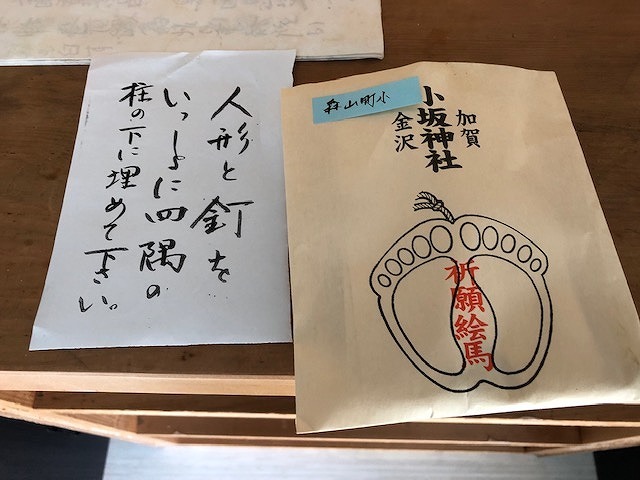 人形と釘を
いっしょに四隅の
柱の下に埋めて下さい。
森山町小
加賀
金沢
小坂神社
祈願絵馬